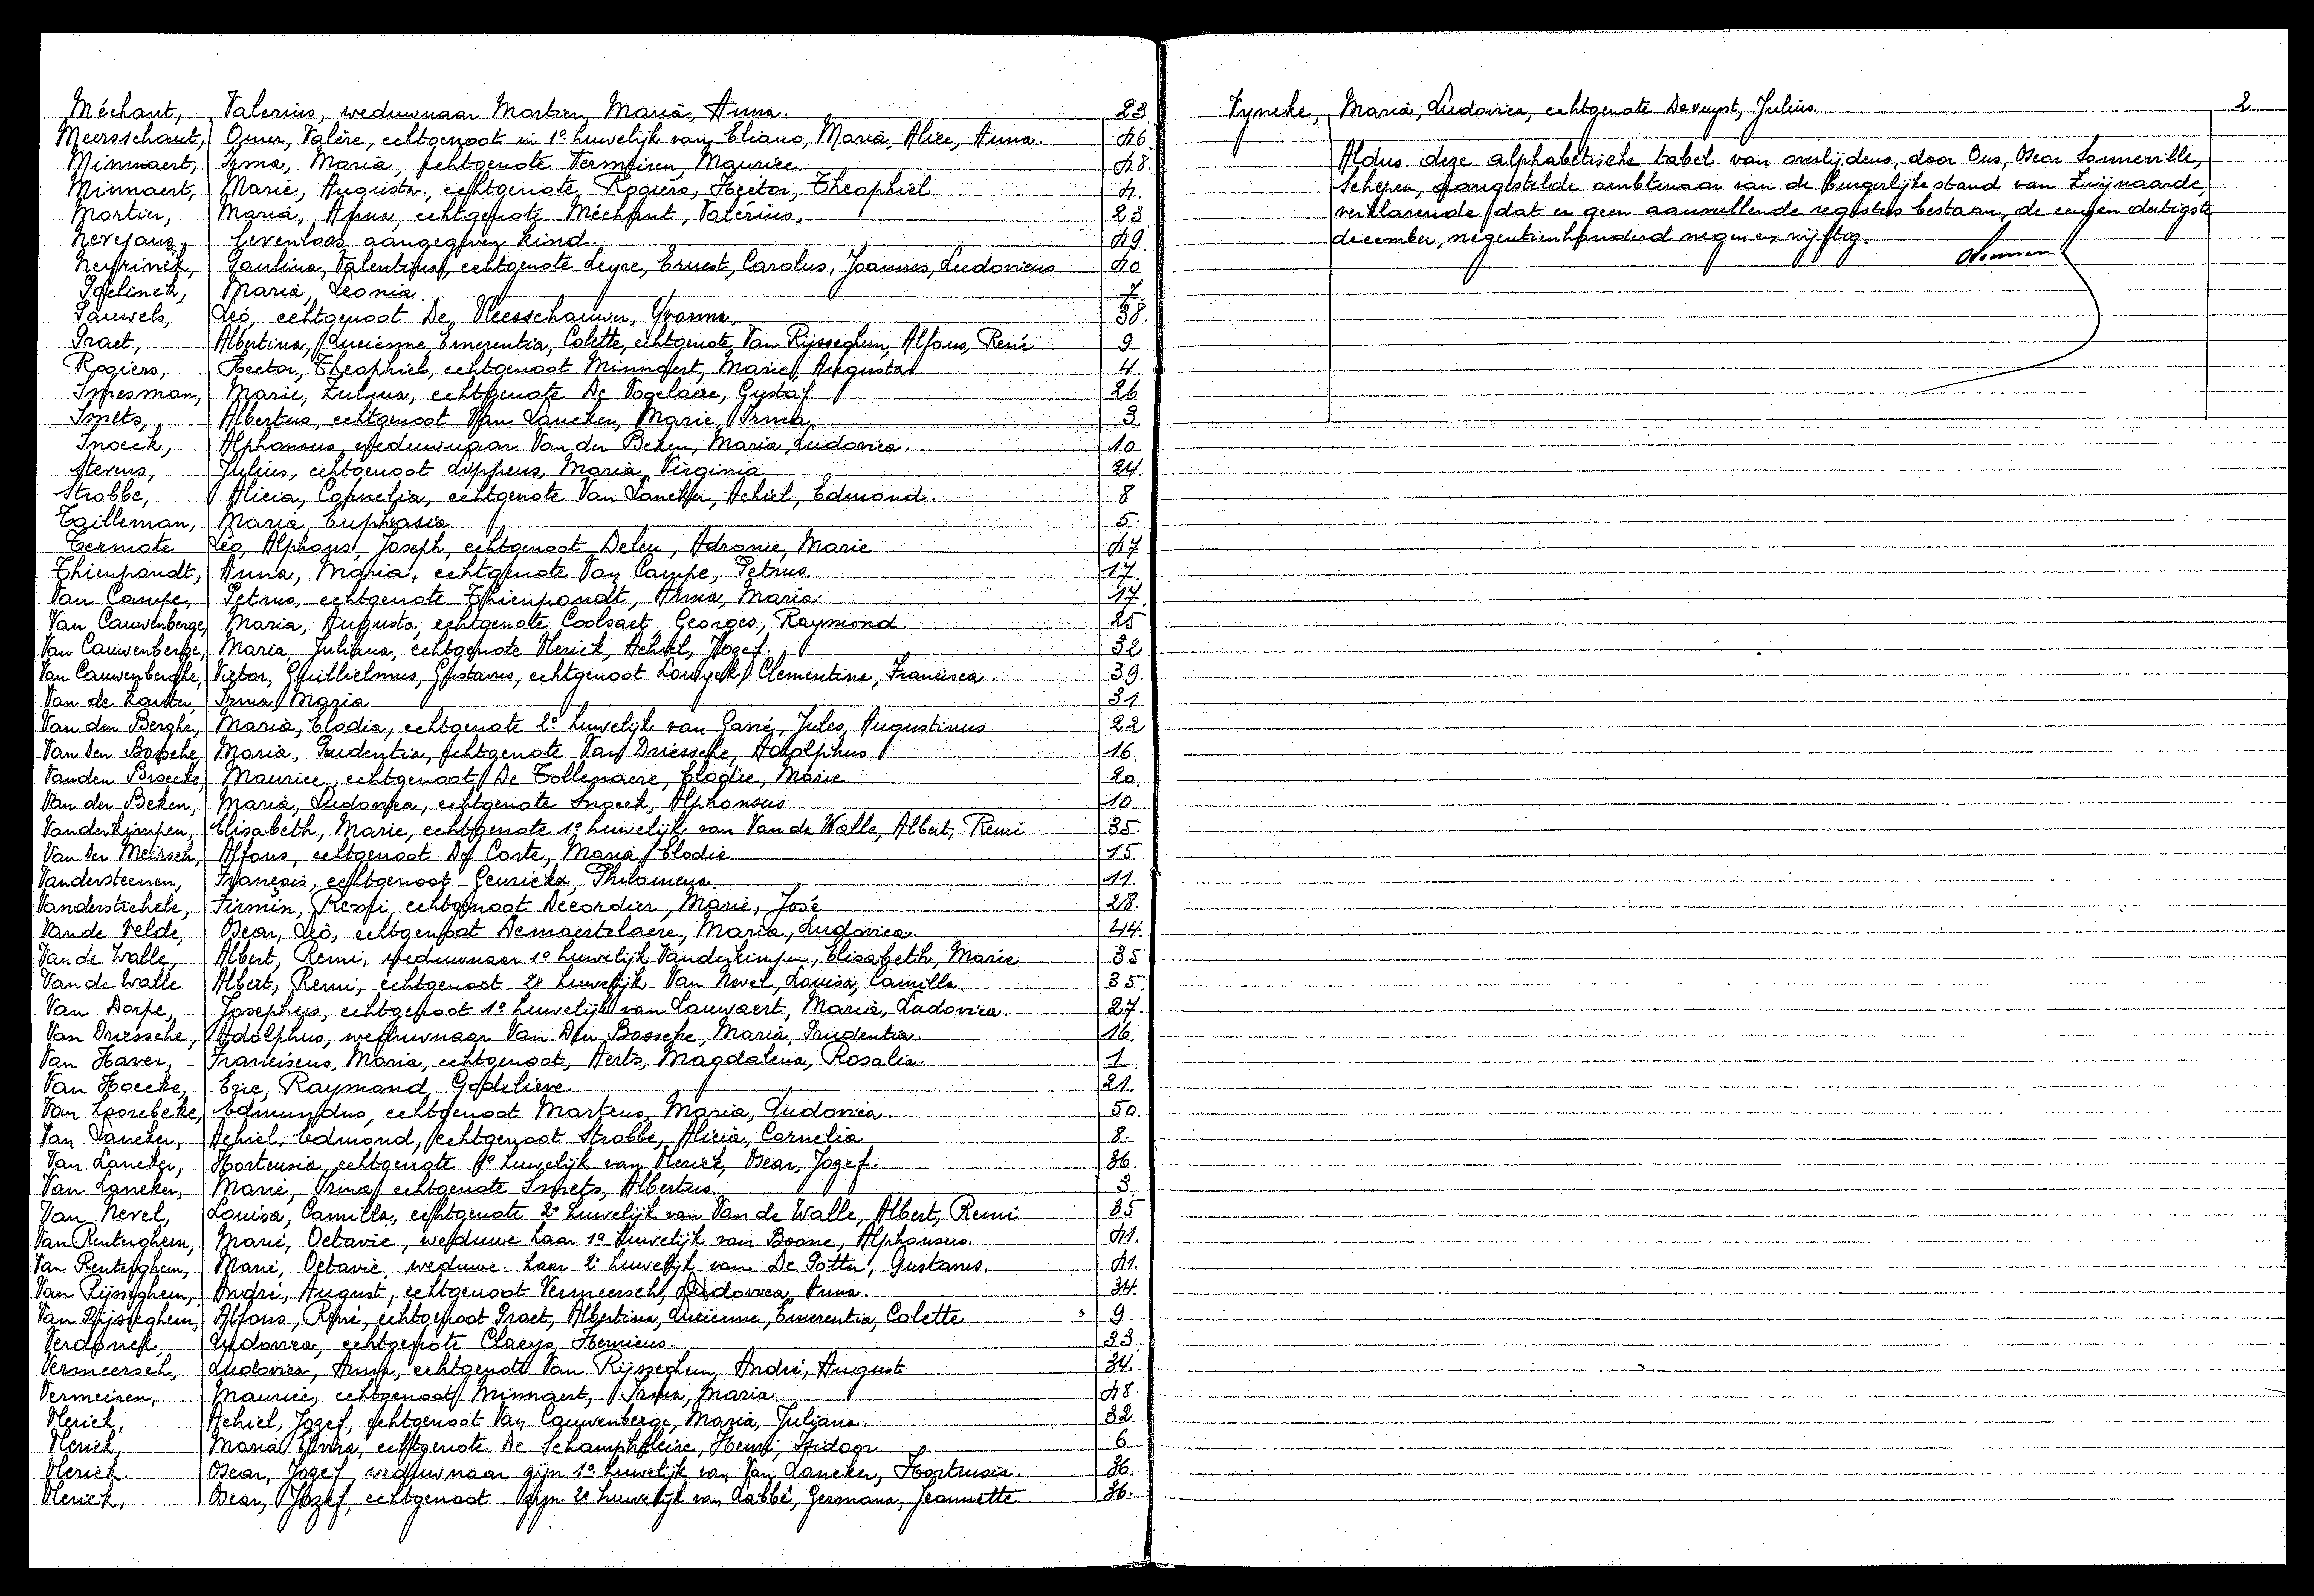 Méchant, Valerius, weduwnaar Mortier, Maria, Anna. 23
Meersschaut, Omer, Valère, echtgenoot in 1º huwelijk van Eliano, Maria, Alice, Anna. 46
Minnaert, Irma, Maria, echtgenote Vermeiren, Maurice. 48.
Minnaert, Marie, Augusta, echtgenote Rogiers, Hector, Theophiel 4.
Mortier, Maria, Anna, echtgenote Méchant, Valérius, 23
Nevejans, levenloos aangegeven kind. 49.
Neyrinck, Paulina, Valentina, echtgenote Leyre, Ernest, Carolus, Joannes, Ludovicus 40
Maria, Leonia 7.
Pauwels, Leo, echtgenoot De Vleesschauwer, Yvonna, 38.
Praet, Albertina, Lucienne, Emerentia, Colette, echtgenote Van Rijsseghem, Alfons, René 9
Rogiers, Hector, Theophiel, echtgenoot Minnaert, Marie, Augusta 4.
Smesman, Marie, Zulma, echtgenote De Vogelaere, Gustaf. 26
Smets, Albertus, echtgenoot Van Lancker, Marie, Irma. 3
Snoeck, Alphonsus, weduwnaar Van der Beken, Maria, Ludovica. 10.
Stevens, Julius, echtgenoot Lippens, Maria, Virginia 24.
Strobbe, Alicia, Cornelia, echtgenote Van Lancker, Achiel, Edmond. 8
Tailleman, Maria, Euphrasia 5.
Termote Leo, Alphons, Joseph, echtgenoot Deleu, Adronie, Marie 47
Thienpondt, Anna, Maria, echtgenote Van Campe, Petrus. 17.
Van Campe, Petrus, echtgenote Thienpondt, Anna, Maria. 17.
Van Cauwenberge, Maria, Augusta, echtgenote Coolsaet Georges, Raymond. 25
Van Cauwenberge, Maria, Juliana, echtgenote Vlerick, Achiel, Jozef. 32
Van Cauwenberghe, Victor, Guillielmus, Gustavus, echtgenoot Louyck, Clementina, Francisca. 39.
Van de Kauter, Irma, Maria 31
Van den Berghe, Maria, Elodia, echtgenote 2º huwelijk van Garré, Jules, Augustinus 22
Van Den Bossche, Maria, Prudentia, echtgenote Van Driessche, Adolphus 16.
Vanden Broecke, Maurice, echtgenoot De Tollenaere, Elodie, Marie 20.
Van der Beken, Maria, Ludovica, echtgenote Snoeck, Alphonsus 10.
Vanderkimpen, Elisabeth, Marie, echtgenote 1º huwelijk van Van de Walle, Albert, Remi 35.
Van Der Meirsch, Alfons, echtgenoot De Corte, Maria, Elodie 15
Vandersteenen, François, echtgenoot Geurickx, Philomena. 11.
Vanderstichele, Firmin, Remi, echtgenoot Decordier, Marie, José 28.
Van de Velde, Oscar, Leo, echtgenoot Demaertelaere, Maria, Ludovica. 44.
Van de Walle, Albert, Remi, weduwnaar 1º huwelijk Vanderkimpen, Elisabeth, Marie 35
Van de Walle Albert, Remi, echtgenoot 2º huwelijk Van Nevel, Louisa, Camilla. 35.
Van Dorpe, Josephus, echtgenoot 1º huwelijk van Lauwaert, Maria, Ludovica. 27.
Van Driessche, Adolphus, weduwnaar Van Den Bossche, Maria, Prudentia. 16.
Van Haver, Franciscus, Maria, echtgenoot, Aerts, Magdalena, Rosalia. 1.
Van Hoecke, Eric, Raymond, Godelieve. 21.
Van Loorebeke, Edmundus, echtgenoot Martens, Maria, Ludovica. 50.
Van Lancker, Achiel, Edmond, echtgenoot Strobbe, Alicia, Cornelia 8.
Van Lancker, Hortensia, echtgenote 1º huwelijk van Vlerick, Oscar, Jozef. 36.
Van Lancker, Marie, Irma, echtgenote Smets, Albertus. 3
Van Nevel, Louisa, Camilla, echtgenote 2º huwelijk van Van de Walle, Albert, Remi 35
Van Renterghem, Marie, Octavie, weduwe haar 1º huwelijk van Boone, Alphonsus. 41.
Van Renterghem, Marie, Octavie, weduwe haar 2º huwelijk van De Potter, Gustavus. 41.
Van Rijsseghem, André, August, echtgenoot Vermeersch, Ludovica, Anna. 34.
Van Rijsseghem, Alfons, René, echtgenoot Praet, Albertina, Lucienne, Emerentia, Colette 9
Verdonck, Ludovica, echtgenote Claeys, Henricus. 33
Vermeersch, Ludovica, Anna, echtgenote Van Rijsseghem, André, August 34.
Vermeiren, Maurice, echtgenoot Minnaert, Irma, Maria. 48.
Vlerick, Achiel, Jozef, echtgenoot Van Cauwenberge, Maria, Juliana. 32
Vlerick, Maria, Elvira, echtgenote De Schampheleire, Henri, Isidoor 6
Vlerick. Oscar, Jozef, weduwnaar zijn 1º huwelijk van Van Lancker, Hortensia. 36.
Vlerick, Oscar, Jozef, echtgenoot zijn 2º huwelijk van Labbé, Germana, Jeannette 36.
Vyncke, Maria, Ludovica, echtgenote Devuyst, Julius. 2
Aldus deze alphabetische tabel van overlijdens, door Ons, Oscar Sonneville,
Schepen, aangestelde ambtenaar van de burgerlijke stand van Zwijnaarde,
verklarende dat er geen aanvullende registers bestaan, de eenen dertigste
december, negentienhonderd negen en vijftig.